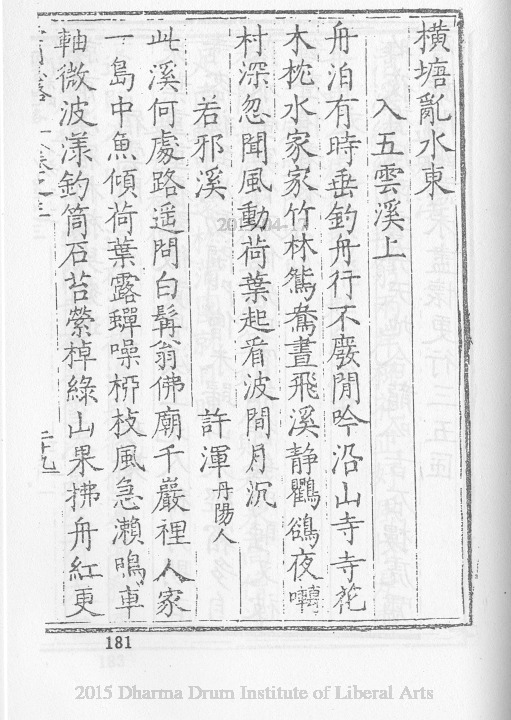 橫塘亂水東
入五雲溪上
舟泊有時垂釣舟行不廢閒吟沿山寺寺花
木枕水家家竹林鴛鴦晝飛溪靜鸛鵒夜囀
村深忽聞風動荷葉起看波間月沉
若邪溪 許渾丹陽人
此溪何處路遥問白髯翁佛廟千巖裡人家
一島中魚傾荷葉露蟬噪枬枝風急瀨鳴車
軸微波漾釣筒石苔縈棹綠山果拂舟紅更
卷之三
二十九
181
2015 Dharma Drum Institute of Liberal Arts